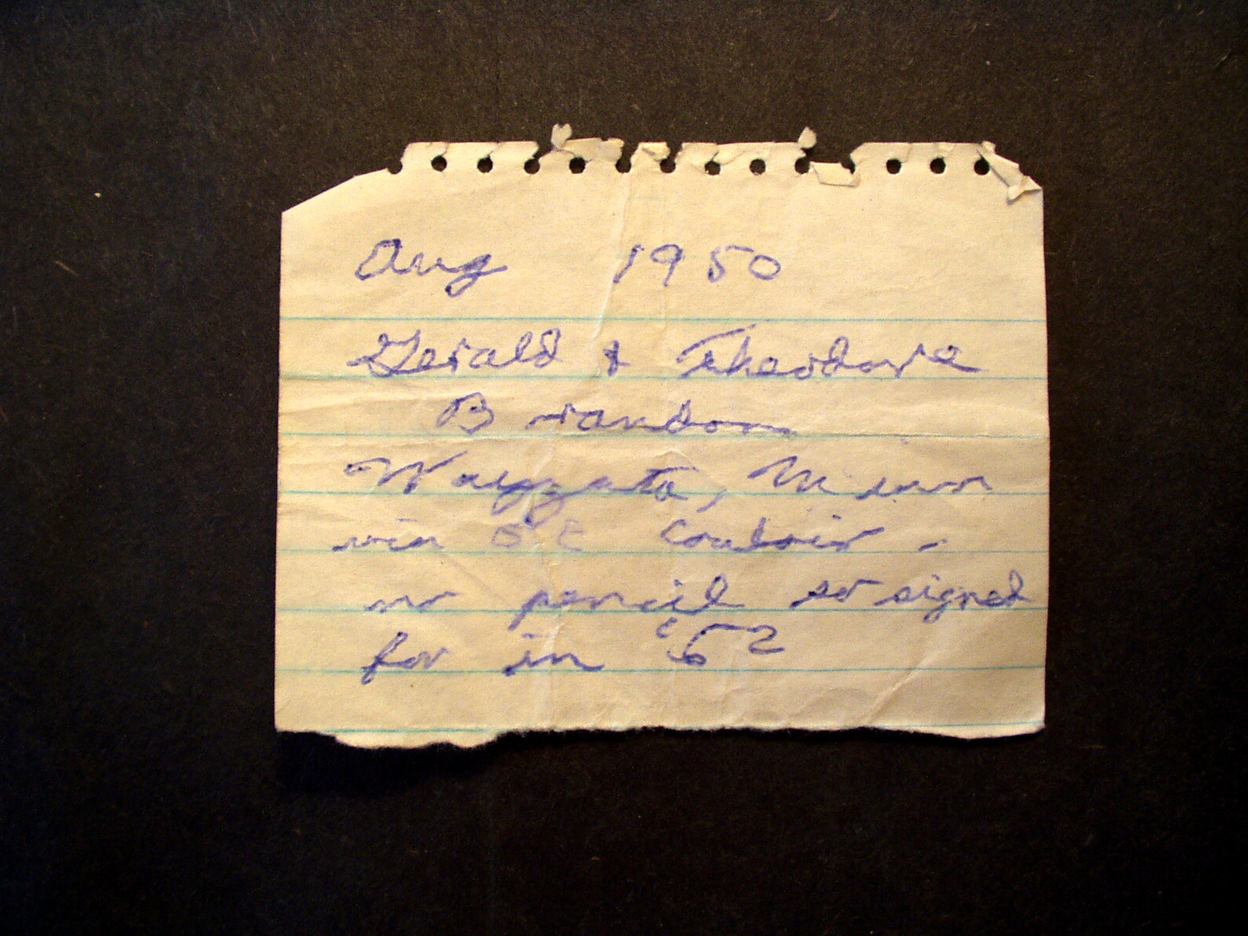 Aug 1950
Gerald & Theodore
Brandom
Wayzata, Minn
via SE Couloir -
no pencil so signed
for in '52